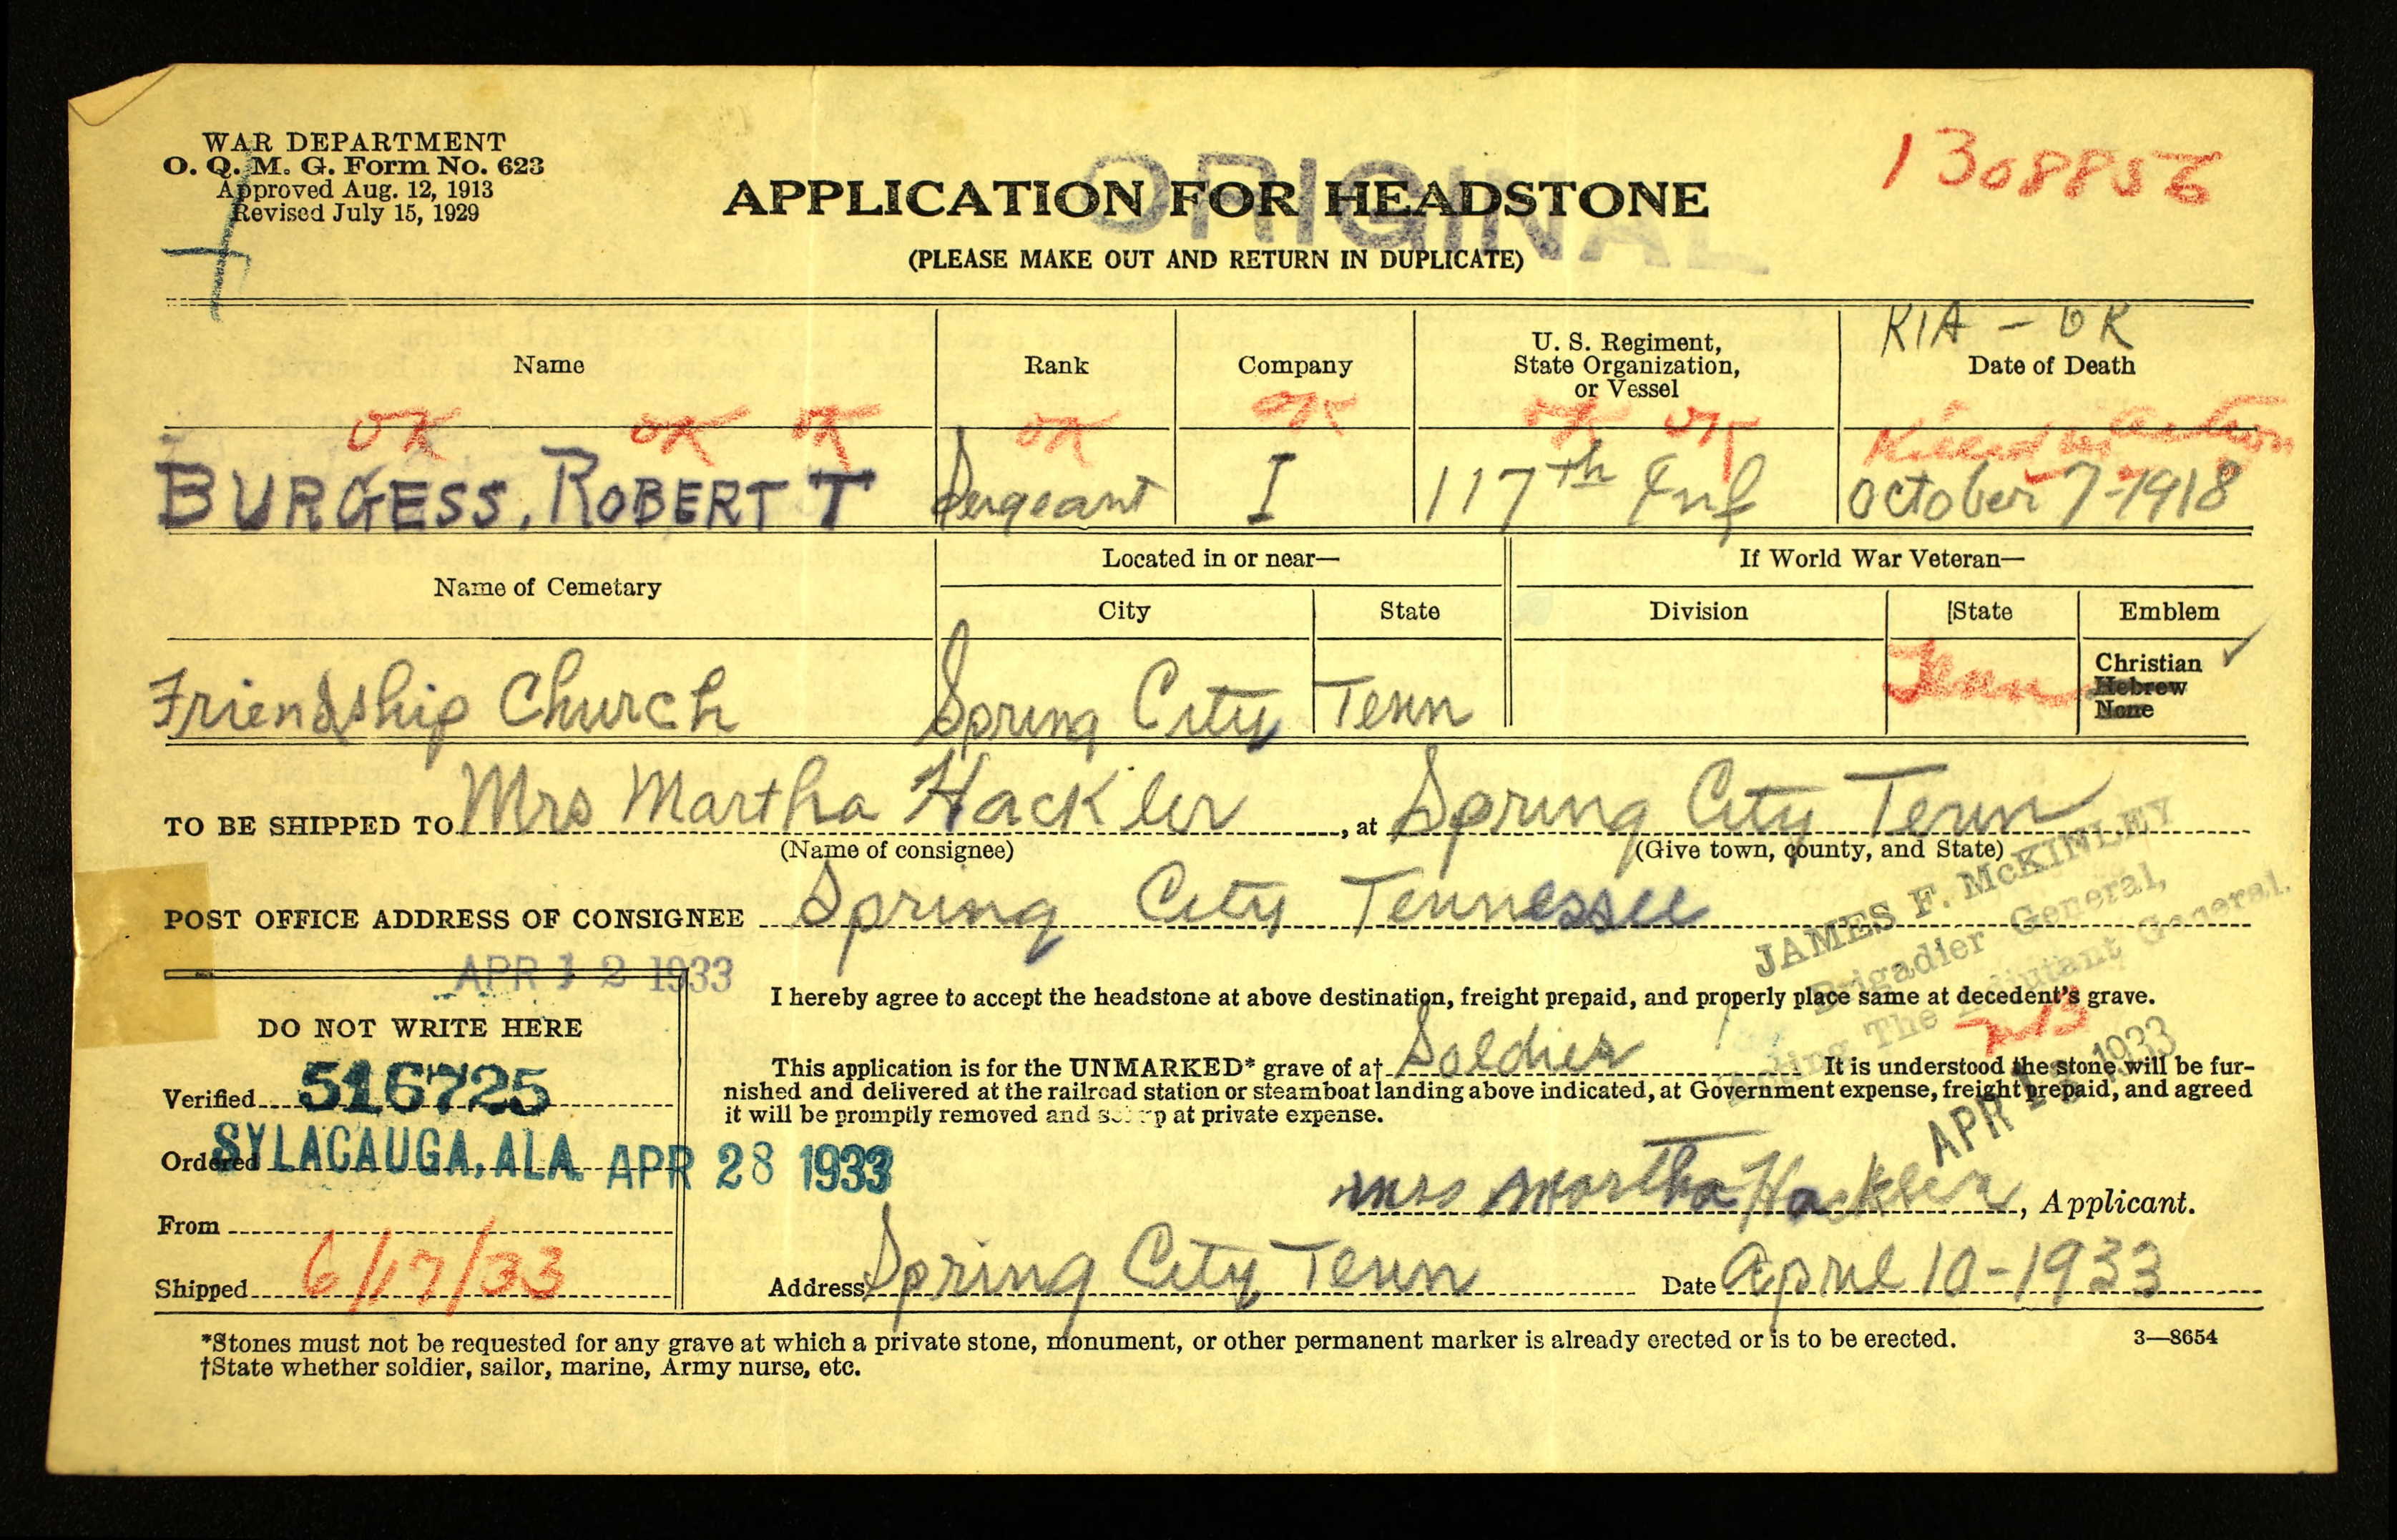 WAR DEPARTMENT
O. Q. M. G. Form No. 623
Approved Aug. 12, 1913
Revised July 15, 1929
ORIGINAL
APPLICATION FOR HEADSTONE
(PLEASE MAKE OUT AND RETURN IN DUPLICATE)
1308856
KIA - OK
Name
Rank
Company
U. S. Regiment,
State Organization,
or Vessel
Date of Death
OK OK OK OK OK OK OK Killed in action
BURGESS, ROBERT T Sergeant I 117th Inf October 7-1918
Name of Cemetary
Located in or near—
If World War Veteran—
City State Division State Emblem
Friendship Church Spring City Tenn Tenn
Christian ✓
Hebrew
None
TO BE SHIPPED TO Mrs Martha Hackler, at Spring City Tenn
(Name of consignee) (Give town, county, and State)
POST OFFICE ADDRESS OF CONSIGNEE Spring City Tennessee
JAMES F. McKINLEY
Brigadier General,
The Adjutant General.
APR 12 1933
I hereby agree to accept the headstone at above destination, freight prepaid, and properly place same at decedent's grave.
DO NOT WRITE HERE
This application is for the UNMARKED* grave of a† Soldier It is understood the stone will be fur-
nished and delivered at the railroad station or steamboat landing above indicated, at Government expense, freight prepaid, and agreed
it will be promptly removed and at private expense.
APR 1933
Verified 516725
Ordered SYLACAUGA, ALA. APR 28 1933
Mrs Martha Hackler, Applicant.
From
Shipped 6/17/33
Address Spring City Tenn Date April 10-1933
*Stones must not be requested for any grave at which a private stone, monument, or other permanent marker is already erected or is to be erected.
3—8654
†State whether soldier, sailor, marine, Army nurse, etc.